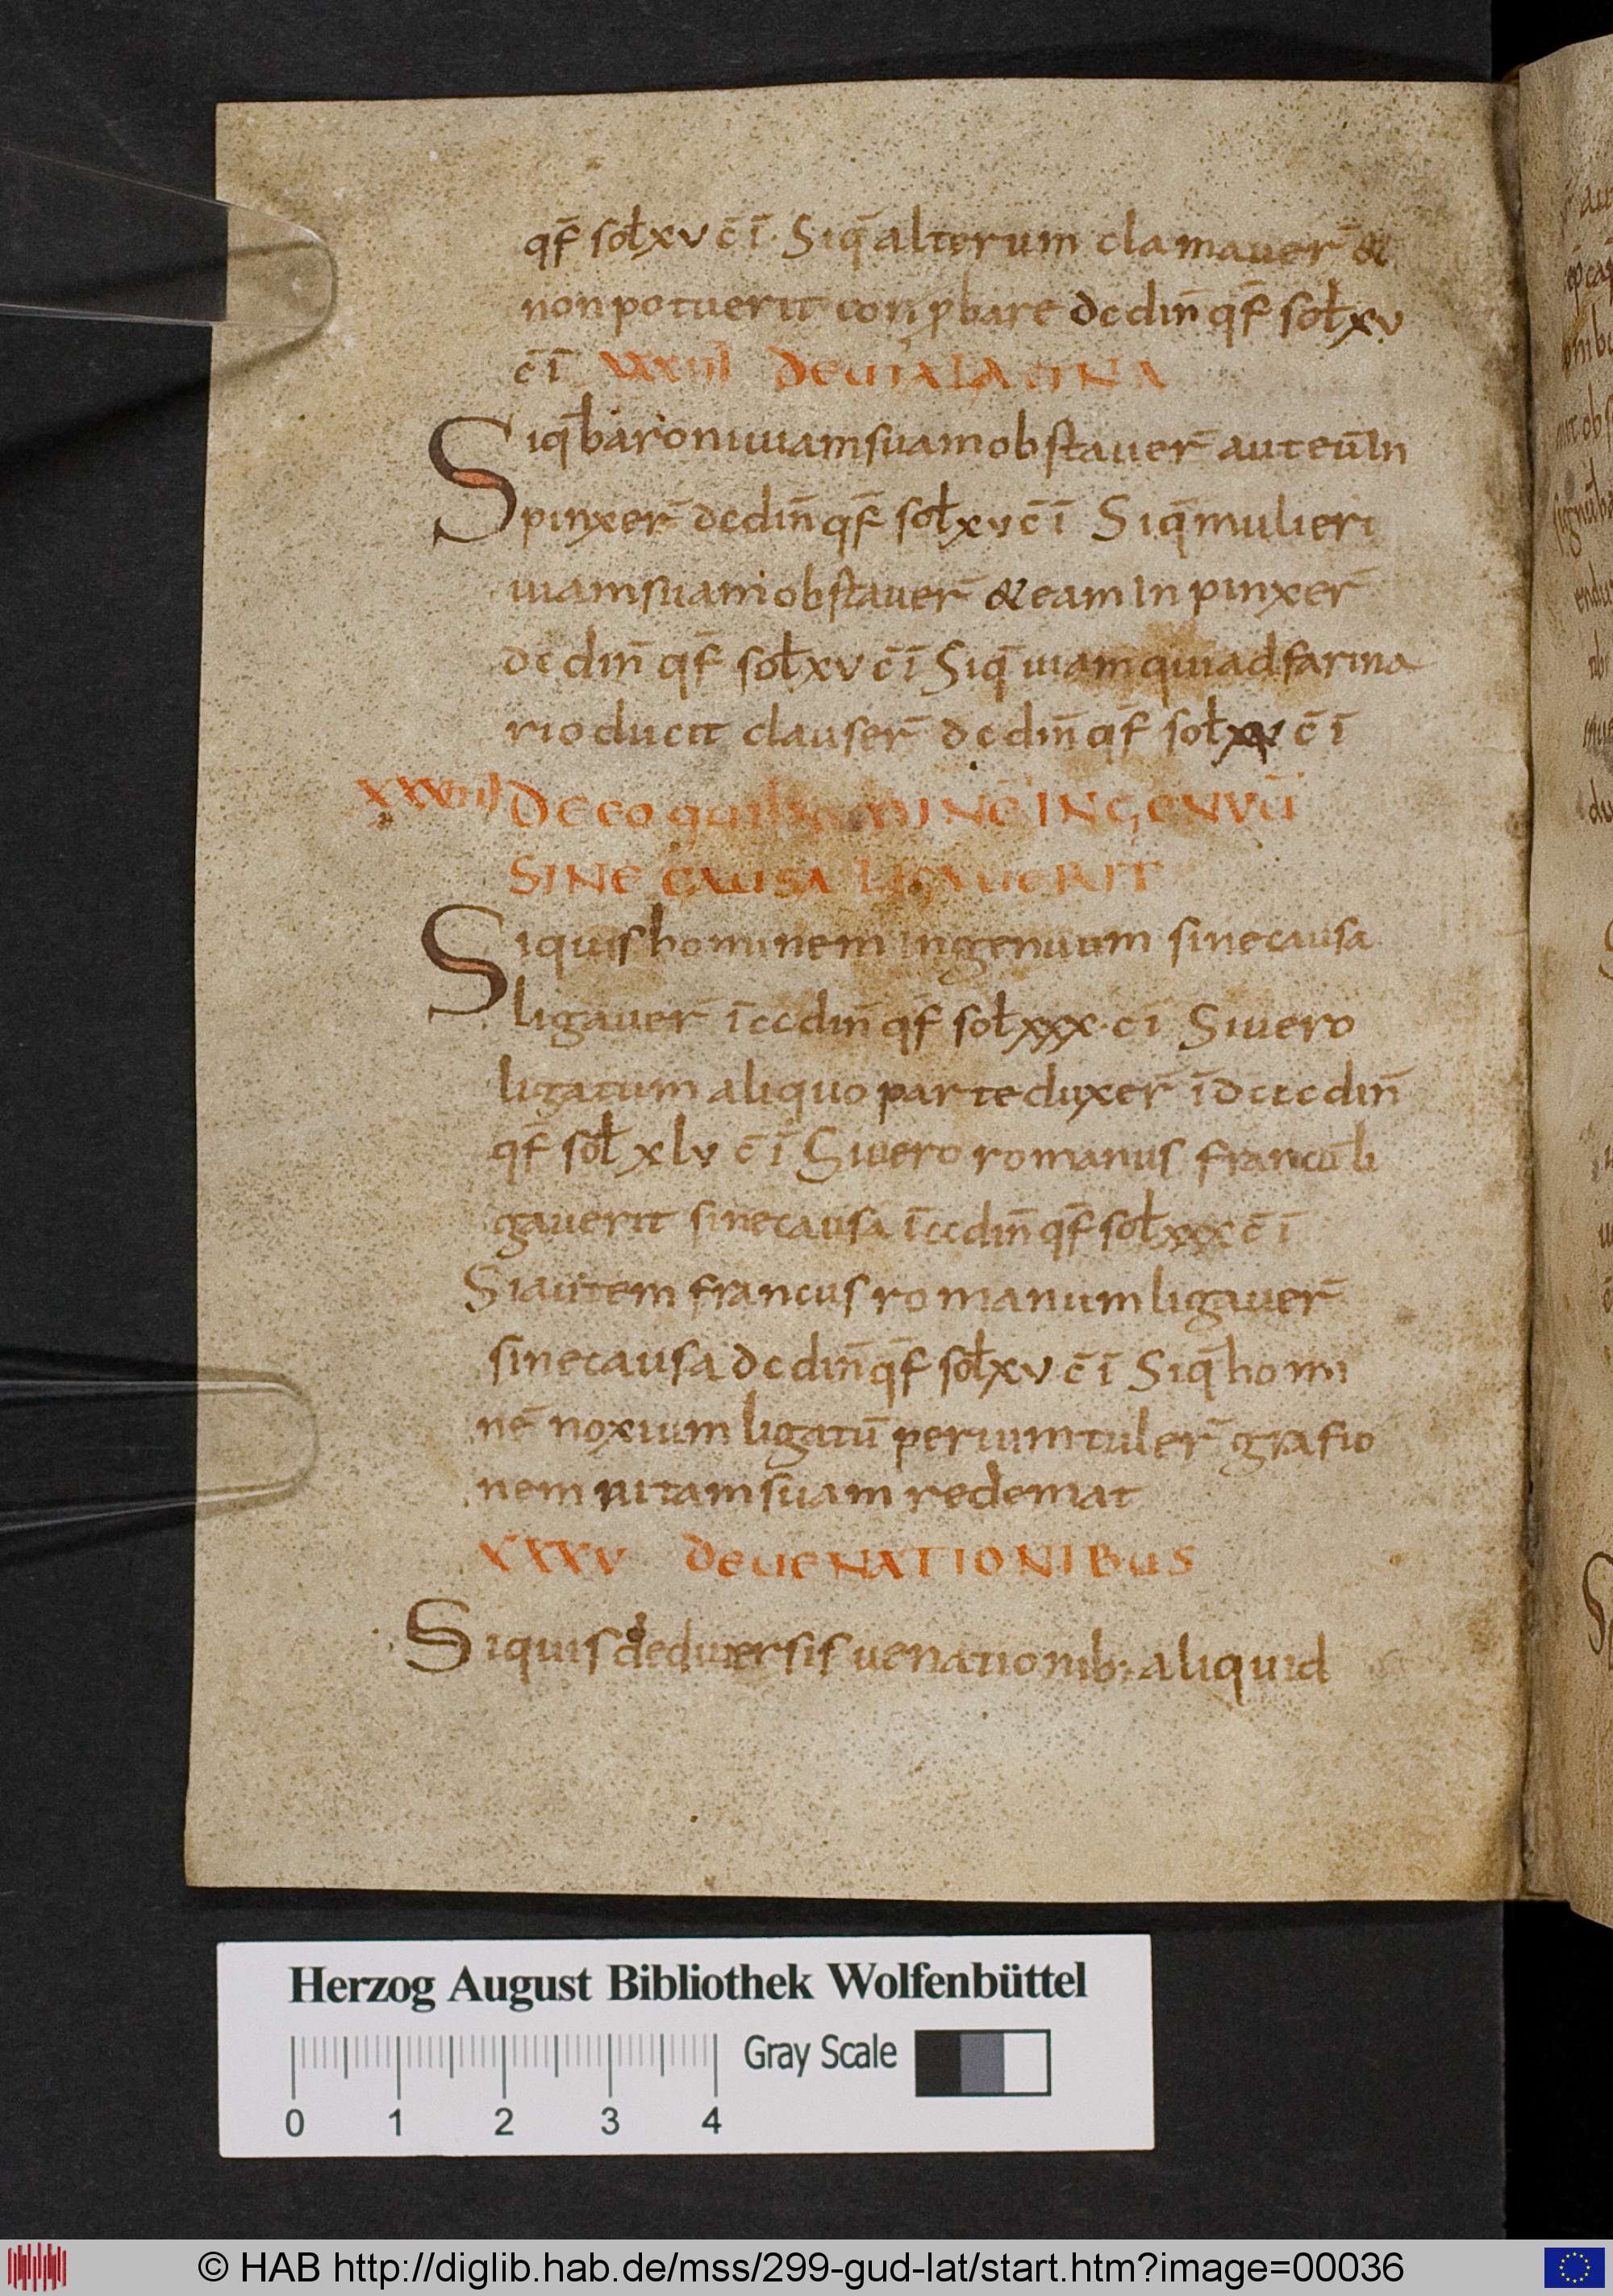 qf̄ soł xv c̄ ī · Siq̄ alterum clamauer̄ &
non potuerit conp̱bare dc din̄ qf̄ soł xv
c̄ ī XXXIII DE UIA LACINA
Siq̄ baroni uiam suam obstauer̄ aut eū In
pinxer̄ dc din̄ qf̄ soł xv c̄ ī Siq̄ mulieri
uiam suam obstauer̄ & eam In pinxer̄
dc din̄ qf̄ soł xv c̄ ī Siq̄ uiam qui ad farina
rio ducit clauser̄ dc din̄ qf̄ soł xv c̄ ī
XXXIIII DE EO qui INGENVŪ
SINE CAUSA LIGAUERIT
Si quis hominem ingenuum sine causa
ligauer̄ ī cc din̄ qf̄ soł xxx · c ī Si uero
ligatum aliquo parte duxer̄ ī dccc din̄
qf̄ soł xlv c̄ ī Si uero romanus francū li
gauerit sine causa ī cc din̄ qf̄ soł xxx c̄ ī
Si autem francus romanum ligauer̄
sine causa dc din̄ qf̄ soł xv c̄ ī Siq̄ homi
nē noxium ligatū per uim tuler̄ grafio
nem uitam suam redemat
XXXV DE UENATIONIBUS
Si quis de diuersis uenationib; aliquid
Herzog August Bibliothek Wolfenbüttel
Gray Scale
0 1 2 3 4
© HAB http://diglib.hab.de/mss/299-gud-lat/start.htm?image=00036